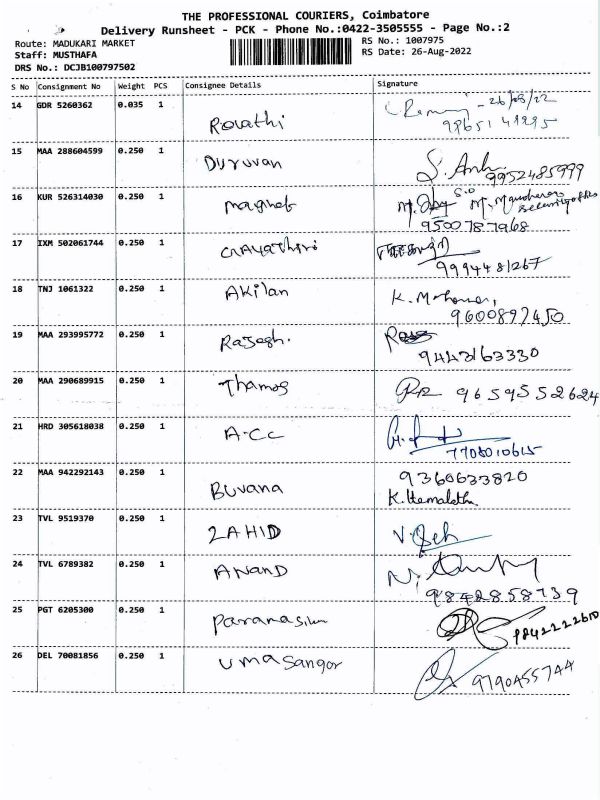 THE PROFESSIONAL COURIERS, Coimbatore
Delivery Runsheet - PCK - Phone No.:0422-3505555 - Page No.:2
Route: MADUKARI MARKET
RS No.: 1007975
Staff: MUSTHAFA
RS Date: 26-Aug-2022
DRS No.: DCJB100797502
S No Consignment No Weight PCS Consignee Details Signature
14 GDR 5260362 0.035 1 - 26/08/22
15 MAA 288604599 0.250 1 Duruvan 9952485999
16 KUR 526314030 0.250 1
9500787968
17 IXM 502061744 0.250 1 Gayathiri
9994481267
18 TNJ 1061322 0.250 1 Akilan
9600897450
19 MAA 293995772 0.250 1 Rajesh.
9443163330
20 MAA 290689915 0.250 1 Thamos 9659552624
21 HRD 305618038 0.250 1 A.CC
7708010615
22 MAA 942292143 0.250 1 9360633820
Buvana K.Hemalatha
23 TVL 9519370 0.250 1 ZAHID
24 TVL 6789382 0.250 1 ANAND
9842858739
25 PGT 6205300 0.250 1 9842222610
26 DEL 70081856 0.250 1 Uma Sangar 9790455744